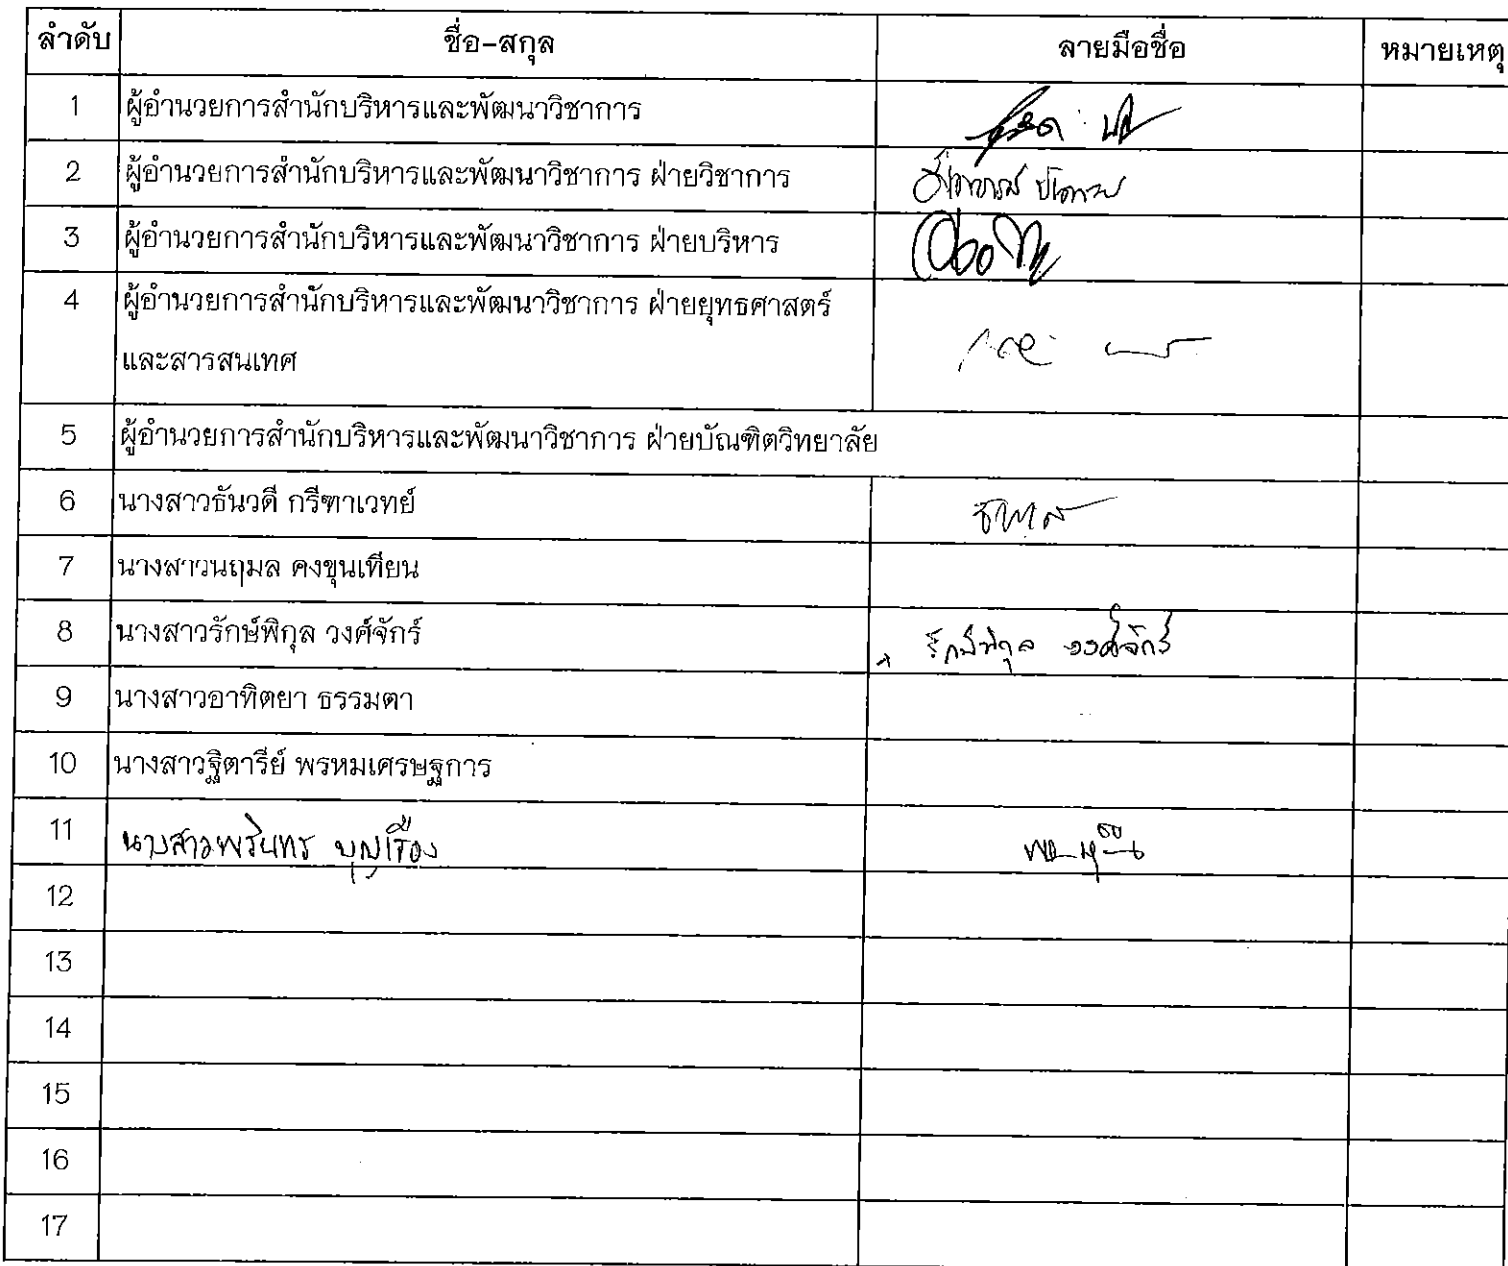 ลำดับ ชื่อ-สกุล ลายมือชื่อ หมายเหตุ
1 ผู้อำนวยการสำนักบริหารและพัฒนาวิชาการ
2 ผู้อำนวยการสำนักบริหารและพัฒนาวิชาการ ฝ่ายวิชาการ
3 ผู้อำนวยการสำนักบริหารและพัฒนาวิชาการ ฝ่ายบริหาร
4 ผู้อำนวยการสำนักบริหารและพัฒนาวิชาการ ฝ่ายยุทธศาสตร์
และสารสนเทศ
5 ผู้อำนวยการสำนักบริหารและพัฒนาวิชาการ ฝ่ายบัณฑิตวิทยาลัย
6 นางสาวธันวดี กรีฑาเวทย์
7 นางสาวนฤมล คงขุนเทียน
8 นางสาวรักษ์พิกุล วงศ์จักร์ รักษ์พิกุล วงศ์จักร์
9 นางสาวอาทิตยา ธรรมตา
10 นางสาวฐิตารีย์ พรหมเศรษฐการ
11 นางสาวพรินทร บุญเรือง
12
13
14
15
16
17